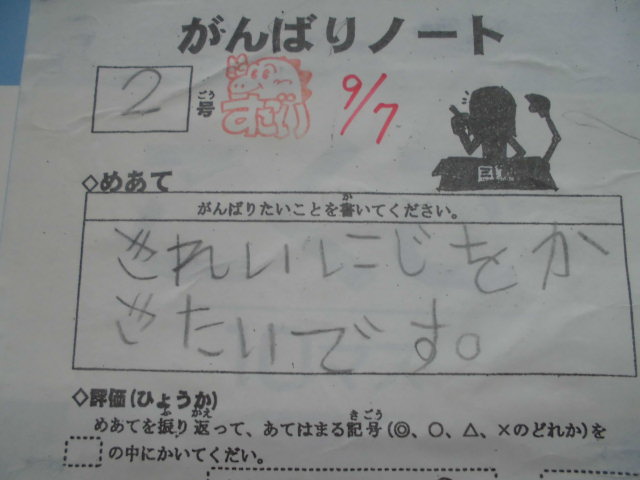 がんばりノート
2 号 すごい 9/7
◇めあて
がんばりたいことを書いてください。
きれいにじをか
きたいです。
◇評価(ひょうか)
めあてを振り返って、あてはまる記号(◎、○、△、×のどれか)を
の中にかいてくだい。